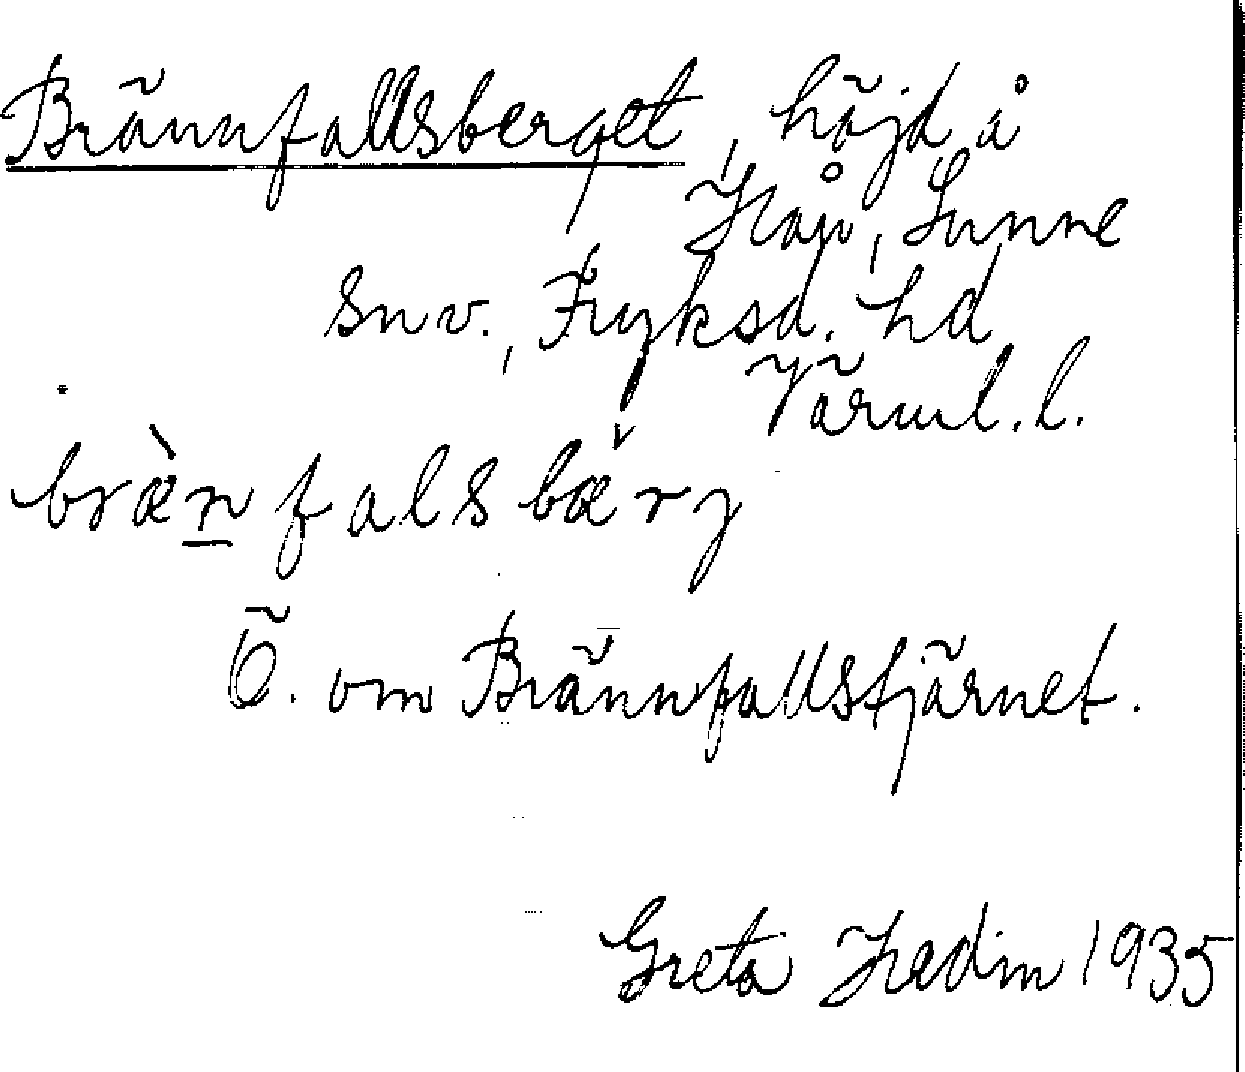 Brännfallsberget, höjd å
Håv, Sunne
snv., Fryksd. hd
Värml. l.
bræ̀nfalsbæ̌rj
Ö. om Brännfallstjärnet.
Greta Hedin 1935